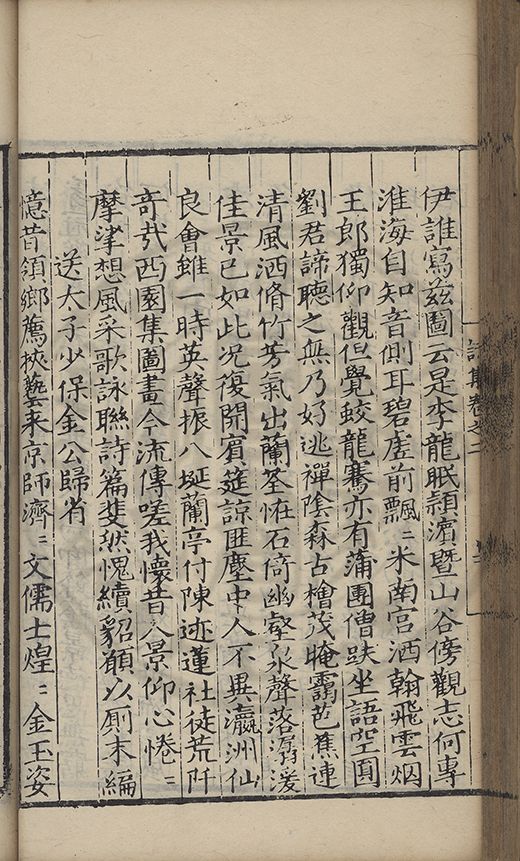 詩集卷之二
伊誰寫茲圖云是李龍眠潁濱暨山谷傍觀志何專
淮海自知音側耳碧虛前飄〻米南宮洒翰飛雲烟
王郎獨仰觀但覺蛟龍騫亦有蒲團僧趺坐語空圓
劉君諦聽之無乃好逃禪陰森古檜茂晻靄芭蕉連
清風洒脩竹芳氣出蘭荃恠石倚幽壑泉聲落潺湲
佳景已如此况復開賓筵諒匪塵中人不異瀛洲仙
良會雖一時英聲振八埏蘭亭付陳迹蓮社徒荒阡
奇哉西園集圖畫今流傳嗟我懷昔人景仰心惓〻
摩挲想風采歌詠聯詩篇斐然愧續貂願以厠末編
送太子少保金公歸省
憶昔領鄉薦挾藝來京師濟〻文儒士煌〻金玉姿